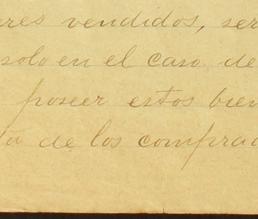 res vendidos, ser
solo en el caso de
poseer estos bien
a de los comprad